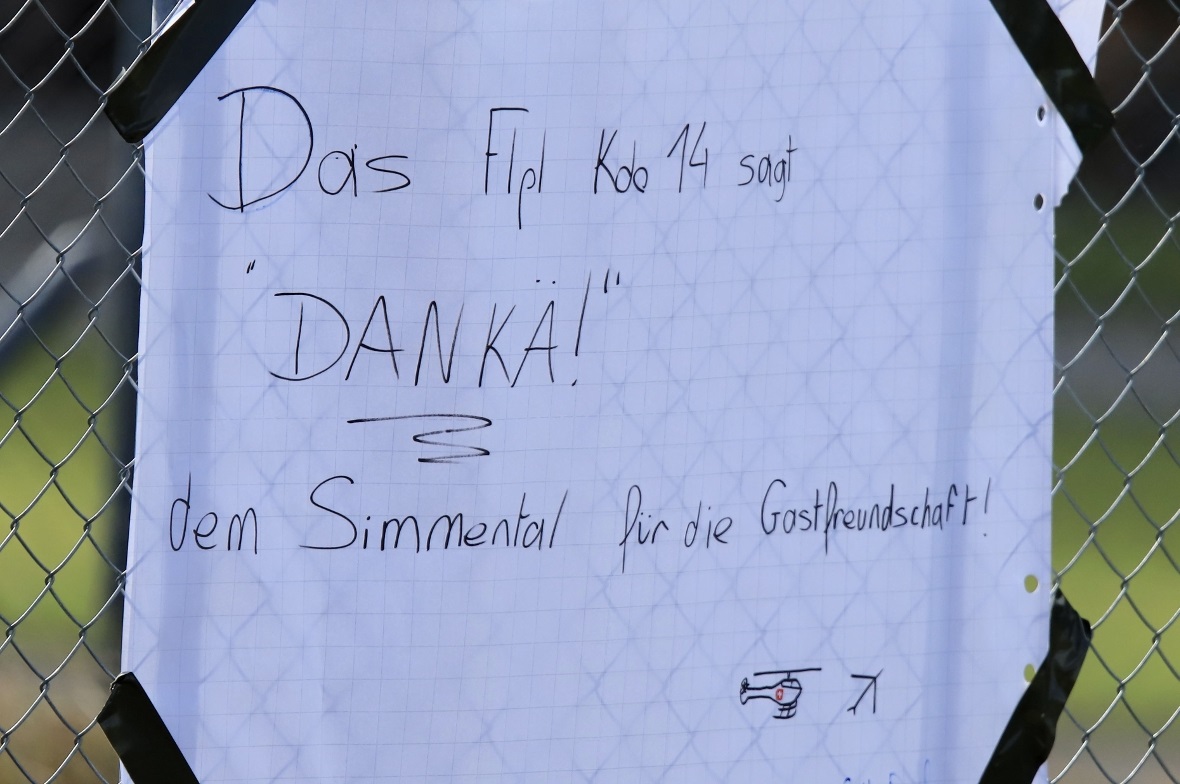 Das Flpl Kdo 14 sagt
"DANKÄ!"
dem Simmental für die Gastfreundschaft!